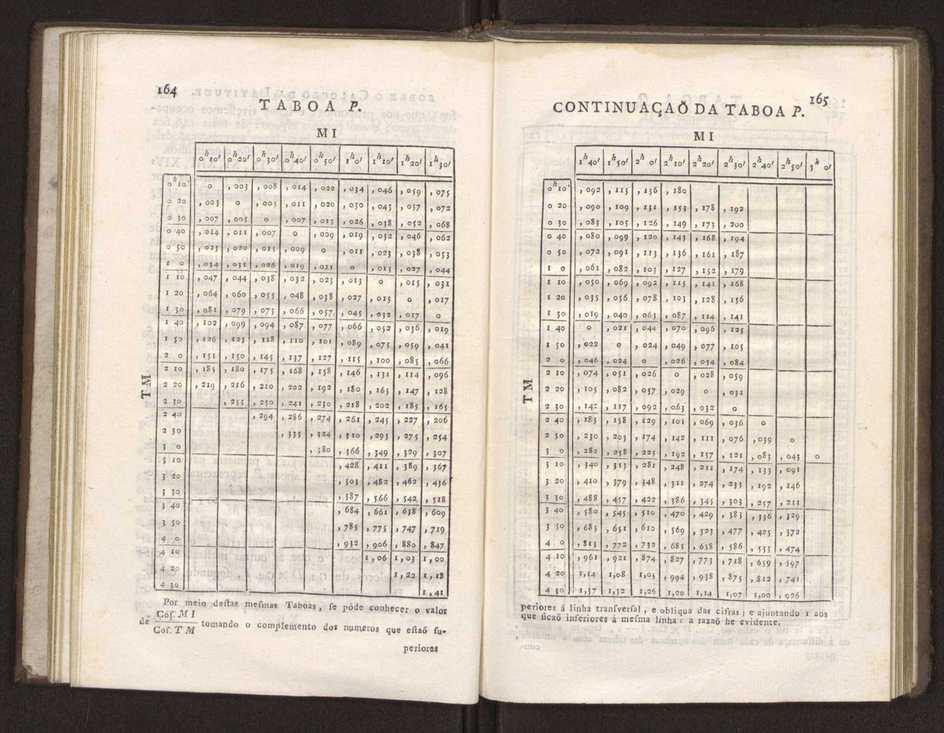 164
TABOA P.
MI
0h 10′ 0h 20′ 0h 30′ 0h 40′ 0h 50′ 1h 0′ 1h 10′ 1h 20′ 1h 30′
TM
0h 10′ 0 ,003 ,008 ,014 ,022 ,034 ,046 ,059 ,075
0 20 ,003 0 ,005 ,011 ,020 ,030 ,043 ,057 ,072
0 30 ,007 ,005 0 ,007 ,015 ,026 ,038 ,052 ,068
0 40 ,014 ,011 ,007 0 ,009 ,019 ,032 ,046 ,062
0 50 ,023 ,020 ,015 ,009 0 ,011 ,023 ,038 ,053
1 0 ,034 ,031 ,026 ,019 ,011 0 ,013 ,027 ,044
1 10 ,047 ,044 ,038 ,032 ,023 ,013 0 ,015 ,031
1 20 ,064 ,060 ,055 ,048 ,038 ,027 ,015 0 ,017
1 30 ,081 ,079 ,073 ,066 ,057 ,045 ,032 ,017 0
1 40 ,102 ,099 ,094 ,087 ,077 ,066 ,052 ,036 ,019
1 50 ,126 ,123 ,118 ,110 ,101 ,089 ,075 ,059 ,041
2 0 ,151 ,150 ,145 ,137 ,127 ,115 ,100 ,085 ,066
2 10 ,185 ,180 ,175 ,168 ,158 ,146 ,131 ,114 ,096
2 20 ,219 ,216 ,210 ,202 ,192 ,180 ,165 ,147 ,128
2 30 ,255 ,250 ,241 ,230 ,218 ,202 ,185 ,165
2 40 ,294 ,286 ,274 ,261 ,245 ,227 ,206
2 50 ,335 ,324 ,310 ,293 ,275 ,254
3 0 ,380 ,366 ,349 ,329 ,307
3 10 ,428 ,411 ,389 ,367
3 20 ,503 ,482 ,462 ,436
3 30 ,587 ,566 ,542 ,518
3 40 ,684 ,661 ,638 ,609
3 50 ,785 ,775 ,747 ,719
4 0 ,932 ,906 ,880 ,847
4 10 1,06 1,03 1,00
4 20 1,22 1,18
4 30 1,41
Por meio destas mesmas Taboas, se póde conhecer o valor
de Cos. M I / Cos. T M tomando o complemento dos numeros que estaõ su-
periores
165
CONTINUAÇAÕ DA TABOA P.
MI
1h 40′ 1h 50′ 2h 0′ 2h 10′ 2h 20′ 2h 30′ 2h 40′ 2h 50′ 3h 0′
TM
0h 10′ ,092 ,115 ,136 ,180
0 20 ,090 ,109 ,131 ,153 ,178 ,192
0 30 ,085 ,105 ,126 ,149 ,173 ,200
0 40 ,080 ,099 ,120 ,143 ,168 ,194
0 50 ,072 ,091 ,113 ,136 ,161 ,187
1 0 ,061 ,082 ,103 ,127 ,152 ,179
1 10 ,050 ,069 ,092 ,115 ,141 ,168
1 20 ,035 ,056 ,078 ,103 ,128 ,156
1 30 ,019 ,040 ,063 ,087 ,114 ,141
1 40 0 ,021 ,044 ,070 ,096 ,125
1 50 ,022 0 ,024 ,049 ,077 ,105
2 0 ,046 ,024 0 ,026 ,054 ,084
2 10 ,074 ,051 ,026 0 ,028 ,059
2 20 ,105 ,082 ,057 ,029 0 ,032
2 30 ,142 ,117 ,092 ,063 ,032 0
2 40 ,183 ,158 ,129 ,101 ,069 ,036 0
2 50 ,230 ,203 ,174 ,142 ,111 ,076 ,039 0
3 0 ,282 ,258 ,225 ,192 ,157 ,121 ,083 ,043 0
3 10 ,340 ,313 ,281 ,248 ,211 ,174 ,133 ,091
3 20 ,410 ,379 ,348 ,311 ,274 ,235 ,192 ,146
3 30 ,488 ,457 ,422 ,386 ,345 ,303 ,257 ,211
3 40 ,580 ,545 ,510 ,470 ,429 ,383 ,336 ,329
3 50 ,683 ,651 ,610 ,569 ,523 ,477 ,425 ,372
4 0 ,813 ,772 ,732 ,685 ,638 ,586 ,533 ,474
4 10 ,961 ,921 ,874 ,827 ,773 ,718 ,659 ,597
4 20 1,14 1,08 1,05 ,994 ,938 ,875 ,812 ,741
4 30 1,37 1,32 1,26 1,20 1,14 1,07 1,00 ,926
periores á linha transversal, e obliqua das cifras; e ajuntando 1 aos
que ficaõ inferiores á mesma linha: a razaõ he evidente.